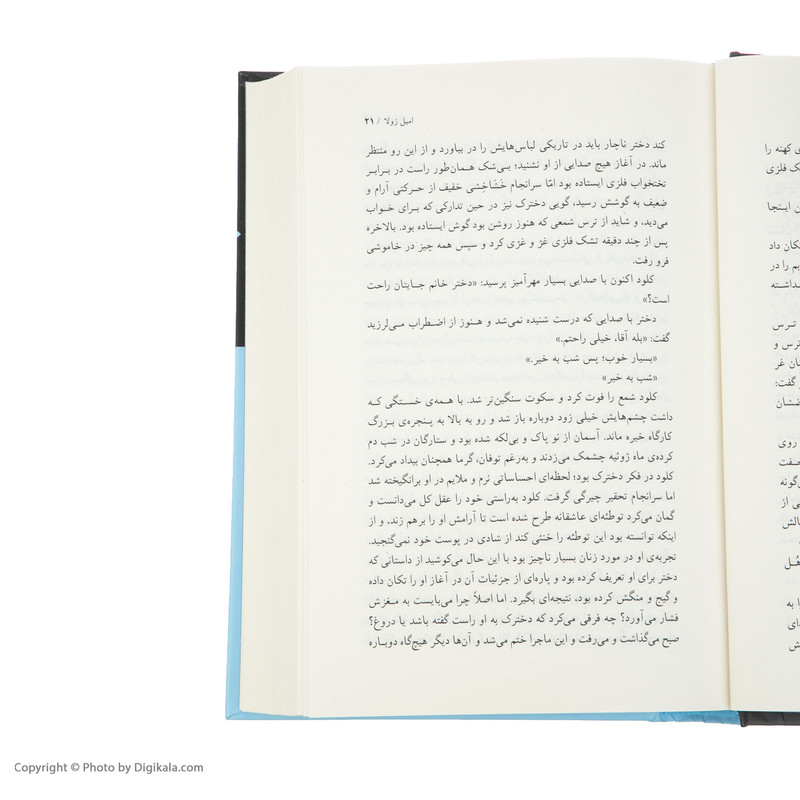 امیل زولا / ۲۱
کند دختر ناچار باید در تاریکی لباس‌هایش را در بیاورد و از این رو منتظر
ماند. در آغاز هیچ صدایی از او نشنید؛ بی‌شک همان‌طور راست در برابر
تختخواب فلزی ایستاده بود امّا سرانجام خَشاخِشی خفیف از حرکتی آرام و
ضعیف به گوشش رسید، گویی دخترک نیز در حین تدارکی که برای خواب
می‌دید، و شاید از ترس شمعی که هنوز روشن بود گوش ایستاده بود. بالاخره
پس از چند دقیقه تشک فلزی غژ و غژی کرد و سپس همه چیز در خاموشی
فرو رفت.
کلود اکنون با صدایی بسیار مهرآمیز پرسید: «دختر خانم جایتان راحت
است؟»
دختر با صدایی که درست شنیده نمی‌شد و هنوز از اضطراب می‌لرزید
گفت: «بله آقا، خیلی راحتم.»
«بسیار خوب؛ پس شب به خیر.»
«شب به خیر»
کلود شمع را فوت کرد و سکوت سنگین‌تر شد. با همه‌ی خستگی که
داشت چشم‌هایش خیلی زود دوباره باز شد و رو به بالا به پنجره‌ی بزرگ
کارگاه خیره ماند. آسمان از نو پاک و بی‌لکه شده بود و ستارگان در شب دم
کرده‌ی ماه ژوئیه چشمک می‌زدند و به‌رغم توفان، گرما همچنان بیداد می‌کرد.
کلود در فکر دخترک بود؛ لحظه‌ای احساساتی نرم و ملایم در او برانگیخته شد
اما سرانجام تحقیر چیرگی گرفت. کلود به‌راستی خود را عقل کل می‌دانست و
گمان می‌کرد توطئه‌ای عاشقانه طرح شده است تا آرامش او را برهم زند، و از
اینکه توانسته بود این توطئه را خنثی کند از شادی در پوست خود نمی‌گنجید.
تجربه‌ی او در مورد زنان بسیار ناچیز بود با این حال می‌کوشید از داستانی که
دختر برای او تعریف کرده بود و پاره‌ای از جزئیات آن در آغاز او را تکان داده
و گیج و منگش کرده بود، نتیجه‌ای بگیرد. اما اصلاً چرا می‌بایست به مغزش
فشار می‌آورد؟ چه فرقی می‌کرد که دخترک به او راست گفته باشد یا دروغ؟
صبح می‌گذاشت و می‌رفت و این ماجرا ختم می‌شد و آن‌ها دیگر هیچ‌گاه دوباره
کهنه را
فلزی
اینجا
داد
را در
ترس
ترس و
غر
گفت:
روی
از
به
Copyright © Photo by Digikala.com